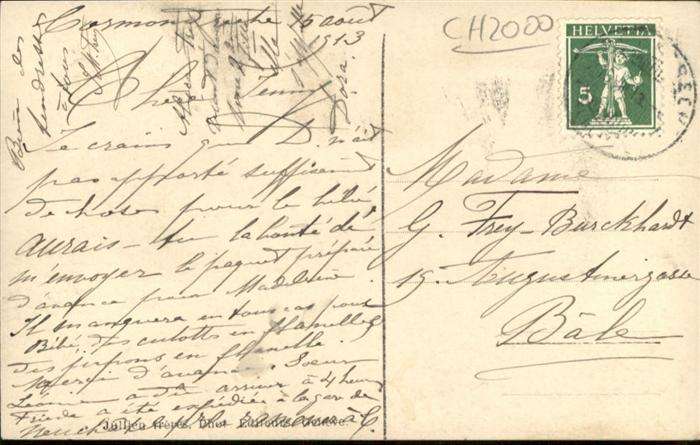 Cormondrèche 15 août
1913
Chère Jenny
Je crains que D. n'ait
pas apporté suffisamment
de choses pour le bébé
aurais-tu la bonté de
m'envoyer le paquet préparé
d'avance par Madeleine
Il manquera en tous cas pour
Bébé des culottes en flanelle
des en flanelle.
Merci d'avance. Soeur
Léonie a dû arriver à 4 heures
Frieda a été expédiée à la gare de
Dora.
Bien des
tendresses
à tous
CH2000
HELVETIA
5
Madame
G. Frey-Burckhardt
15, Augustinergasse
Bâle
Jullien frères, Phot. Editeurs, Genève